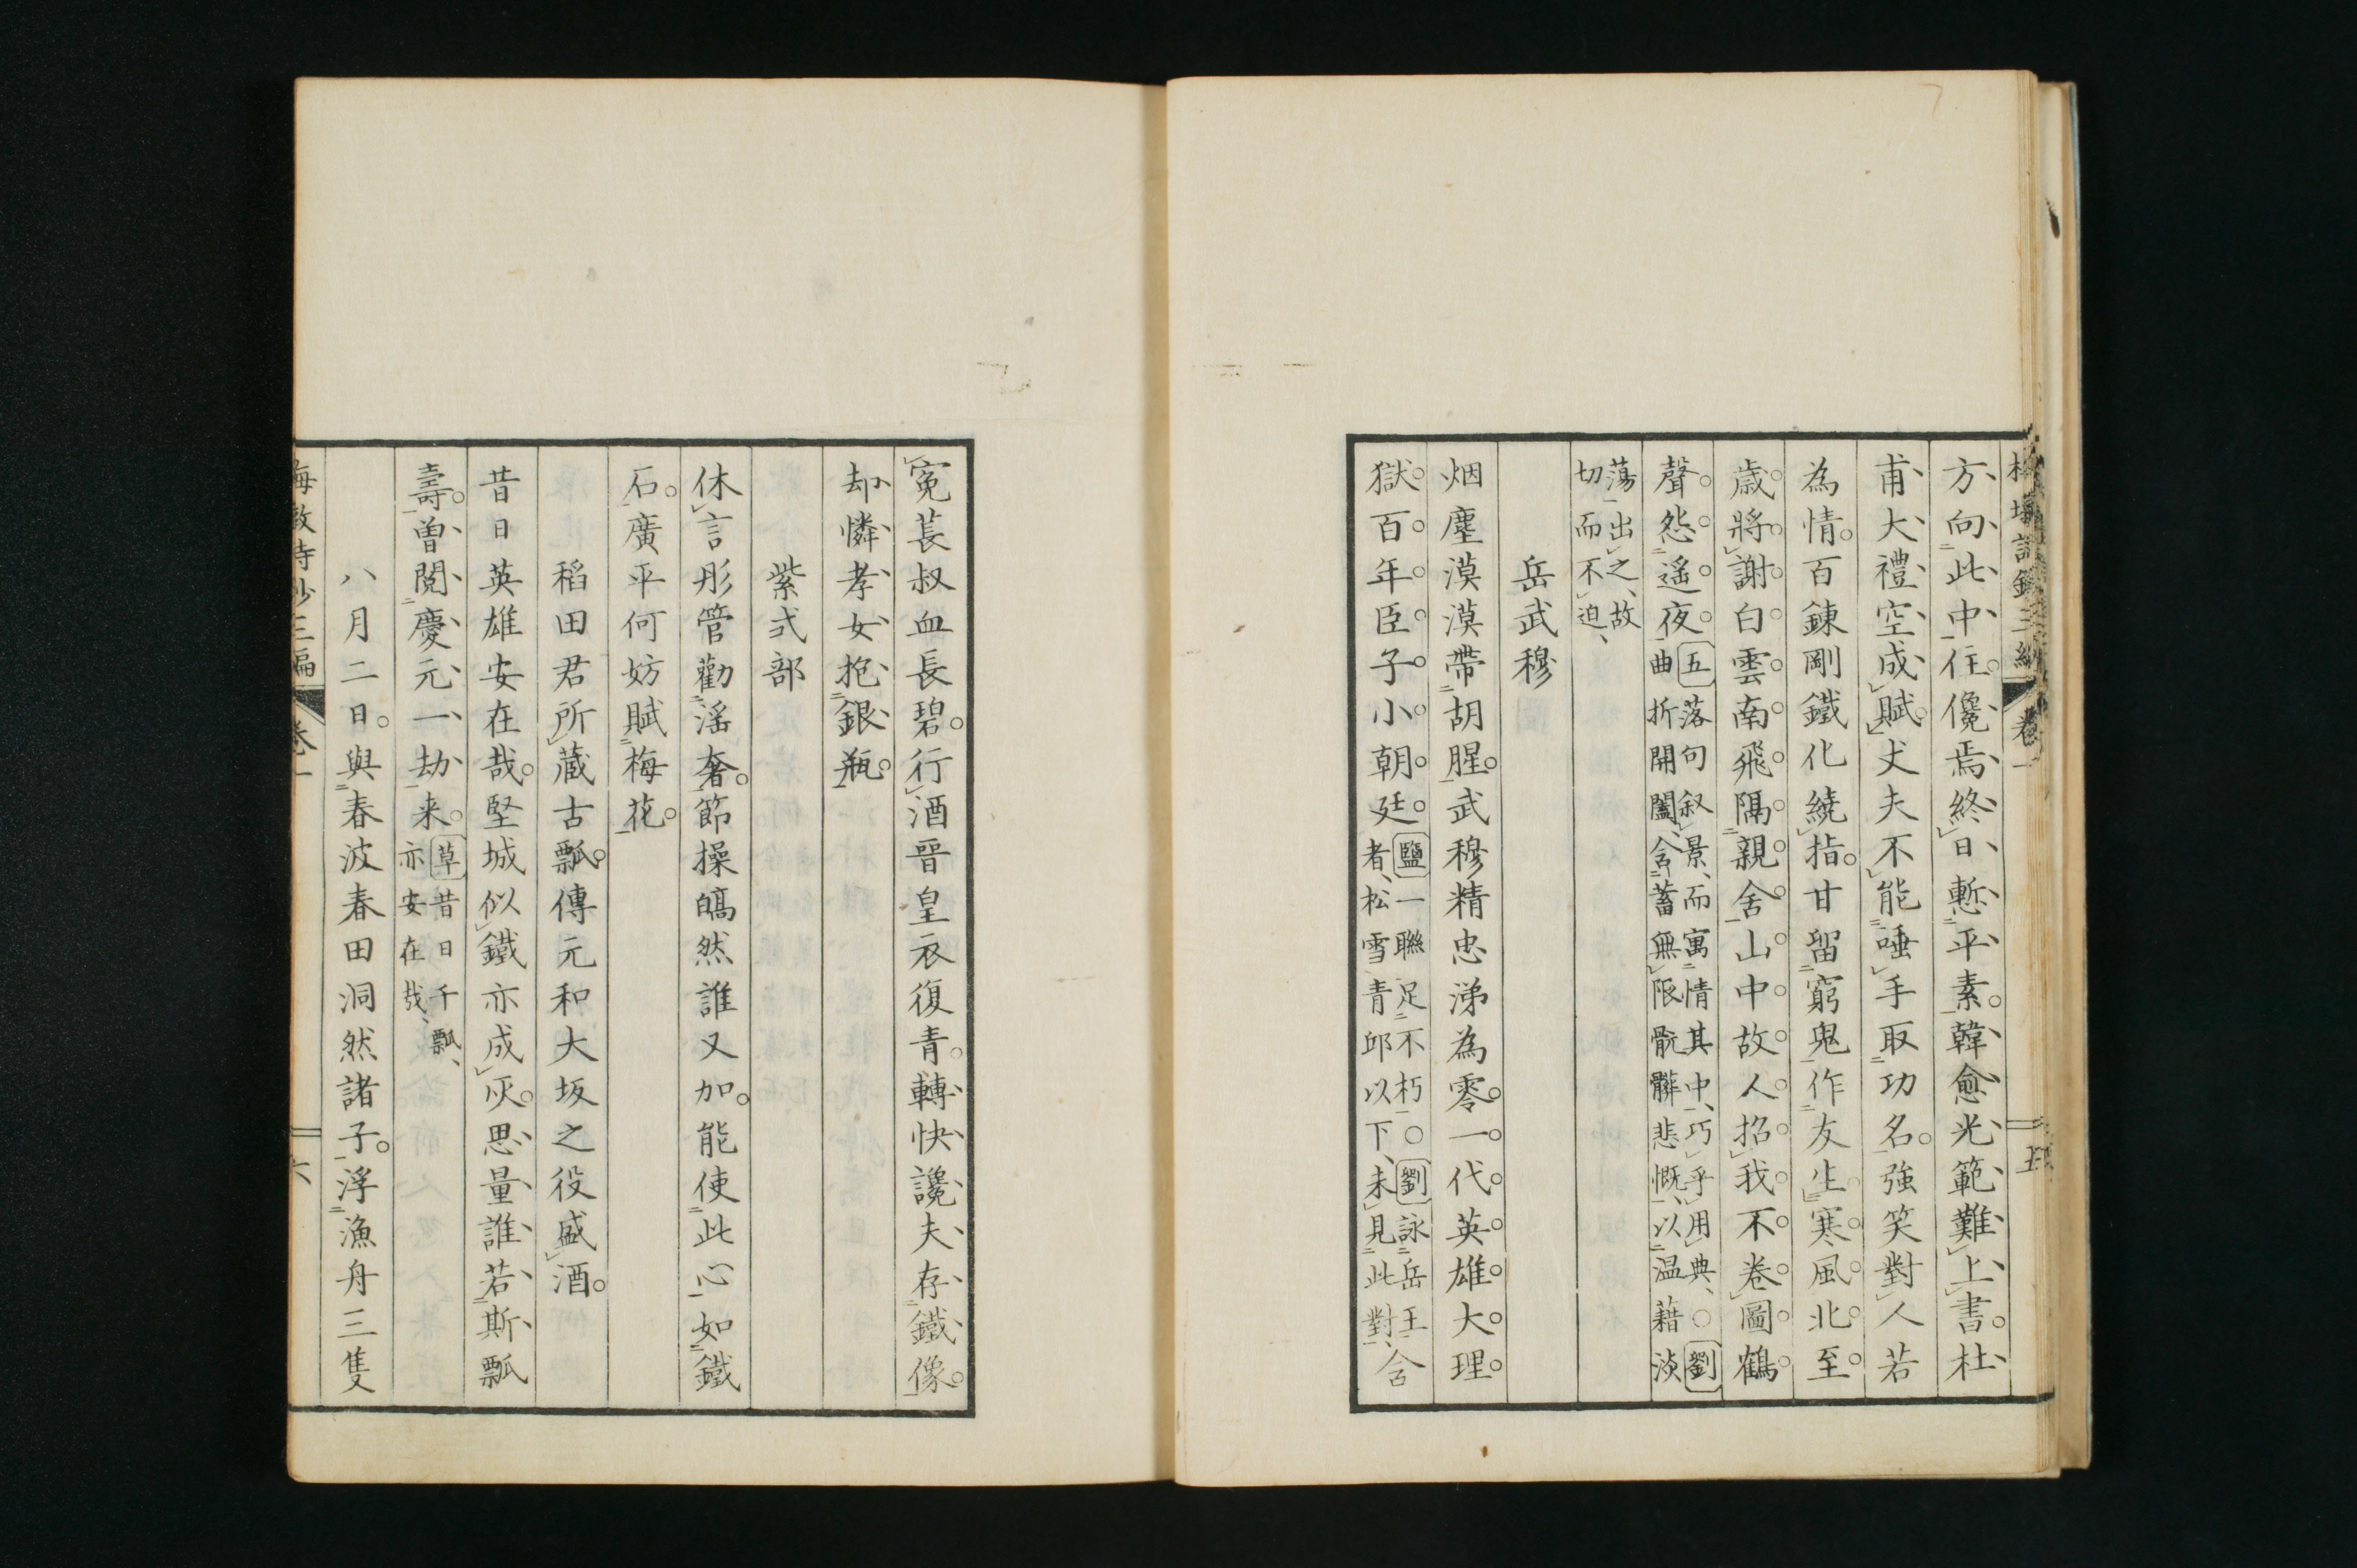 方向此中住儳焉終日慙平素韓愈光範難上書杜
甫大禮空成賦丈夫不能唾手取功名強笑對人若
為情百鍊剛鐵化繞指甘留窮鬼作友生寒風北至
歳將謝白雲南飛隔親舍山中故人招我不卷圖鶴
聲怨遥夜
五落句叙景而寓情其中巧乎用典○劉
曲折開闔含蓄無限骯髒悲慨以温藉淡
蕩出之故
切而不迫
岳武穆
烟塵漠漠帶胡腥武穆精忠涕為零一代英雄大理
獄百年臣子小朝廷
鹽一聯足不朽○劉詠岳王
者松雪青邱以下未見此對含
冤萇叔血長碧行酒晋皇衣復青轉快讒夫存鐵像
却憐孝女抱銀瓶
紫式部
休言彤管勸淫奢節操皜然誰又加能使此心如鐵
石廣平何妨賦梅花
稻田君所蔵古瓢傳元和大坂之役盛酒
昔日英雄安在哉堅城似鐵亦成灰思量誰若斯瓢
壽曽閲慶元一劫来
草昔日千瓢
亦安在哉
八月二日與春波春田洞然諸子浮漁舟三隻
卷一
六